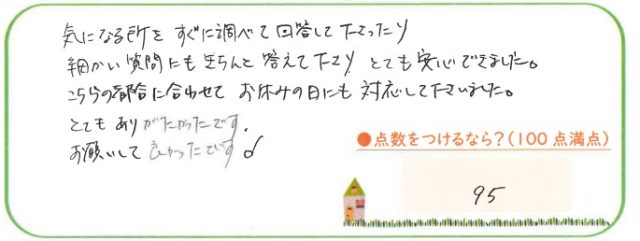 気になる所を すぐに調べて回答して下さったり
細かい質問にもきちんと答えて下さり とても安心できました。
こちらの都合に合わせて お休みの日にも対応して下さいました。
とてもありがたかったです。
お願いして良かったです
●点数をつけるなら?(100点満点)
95